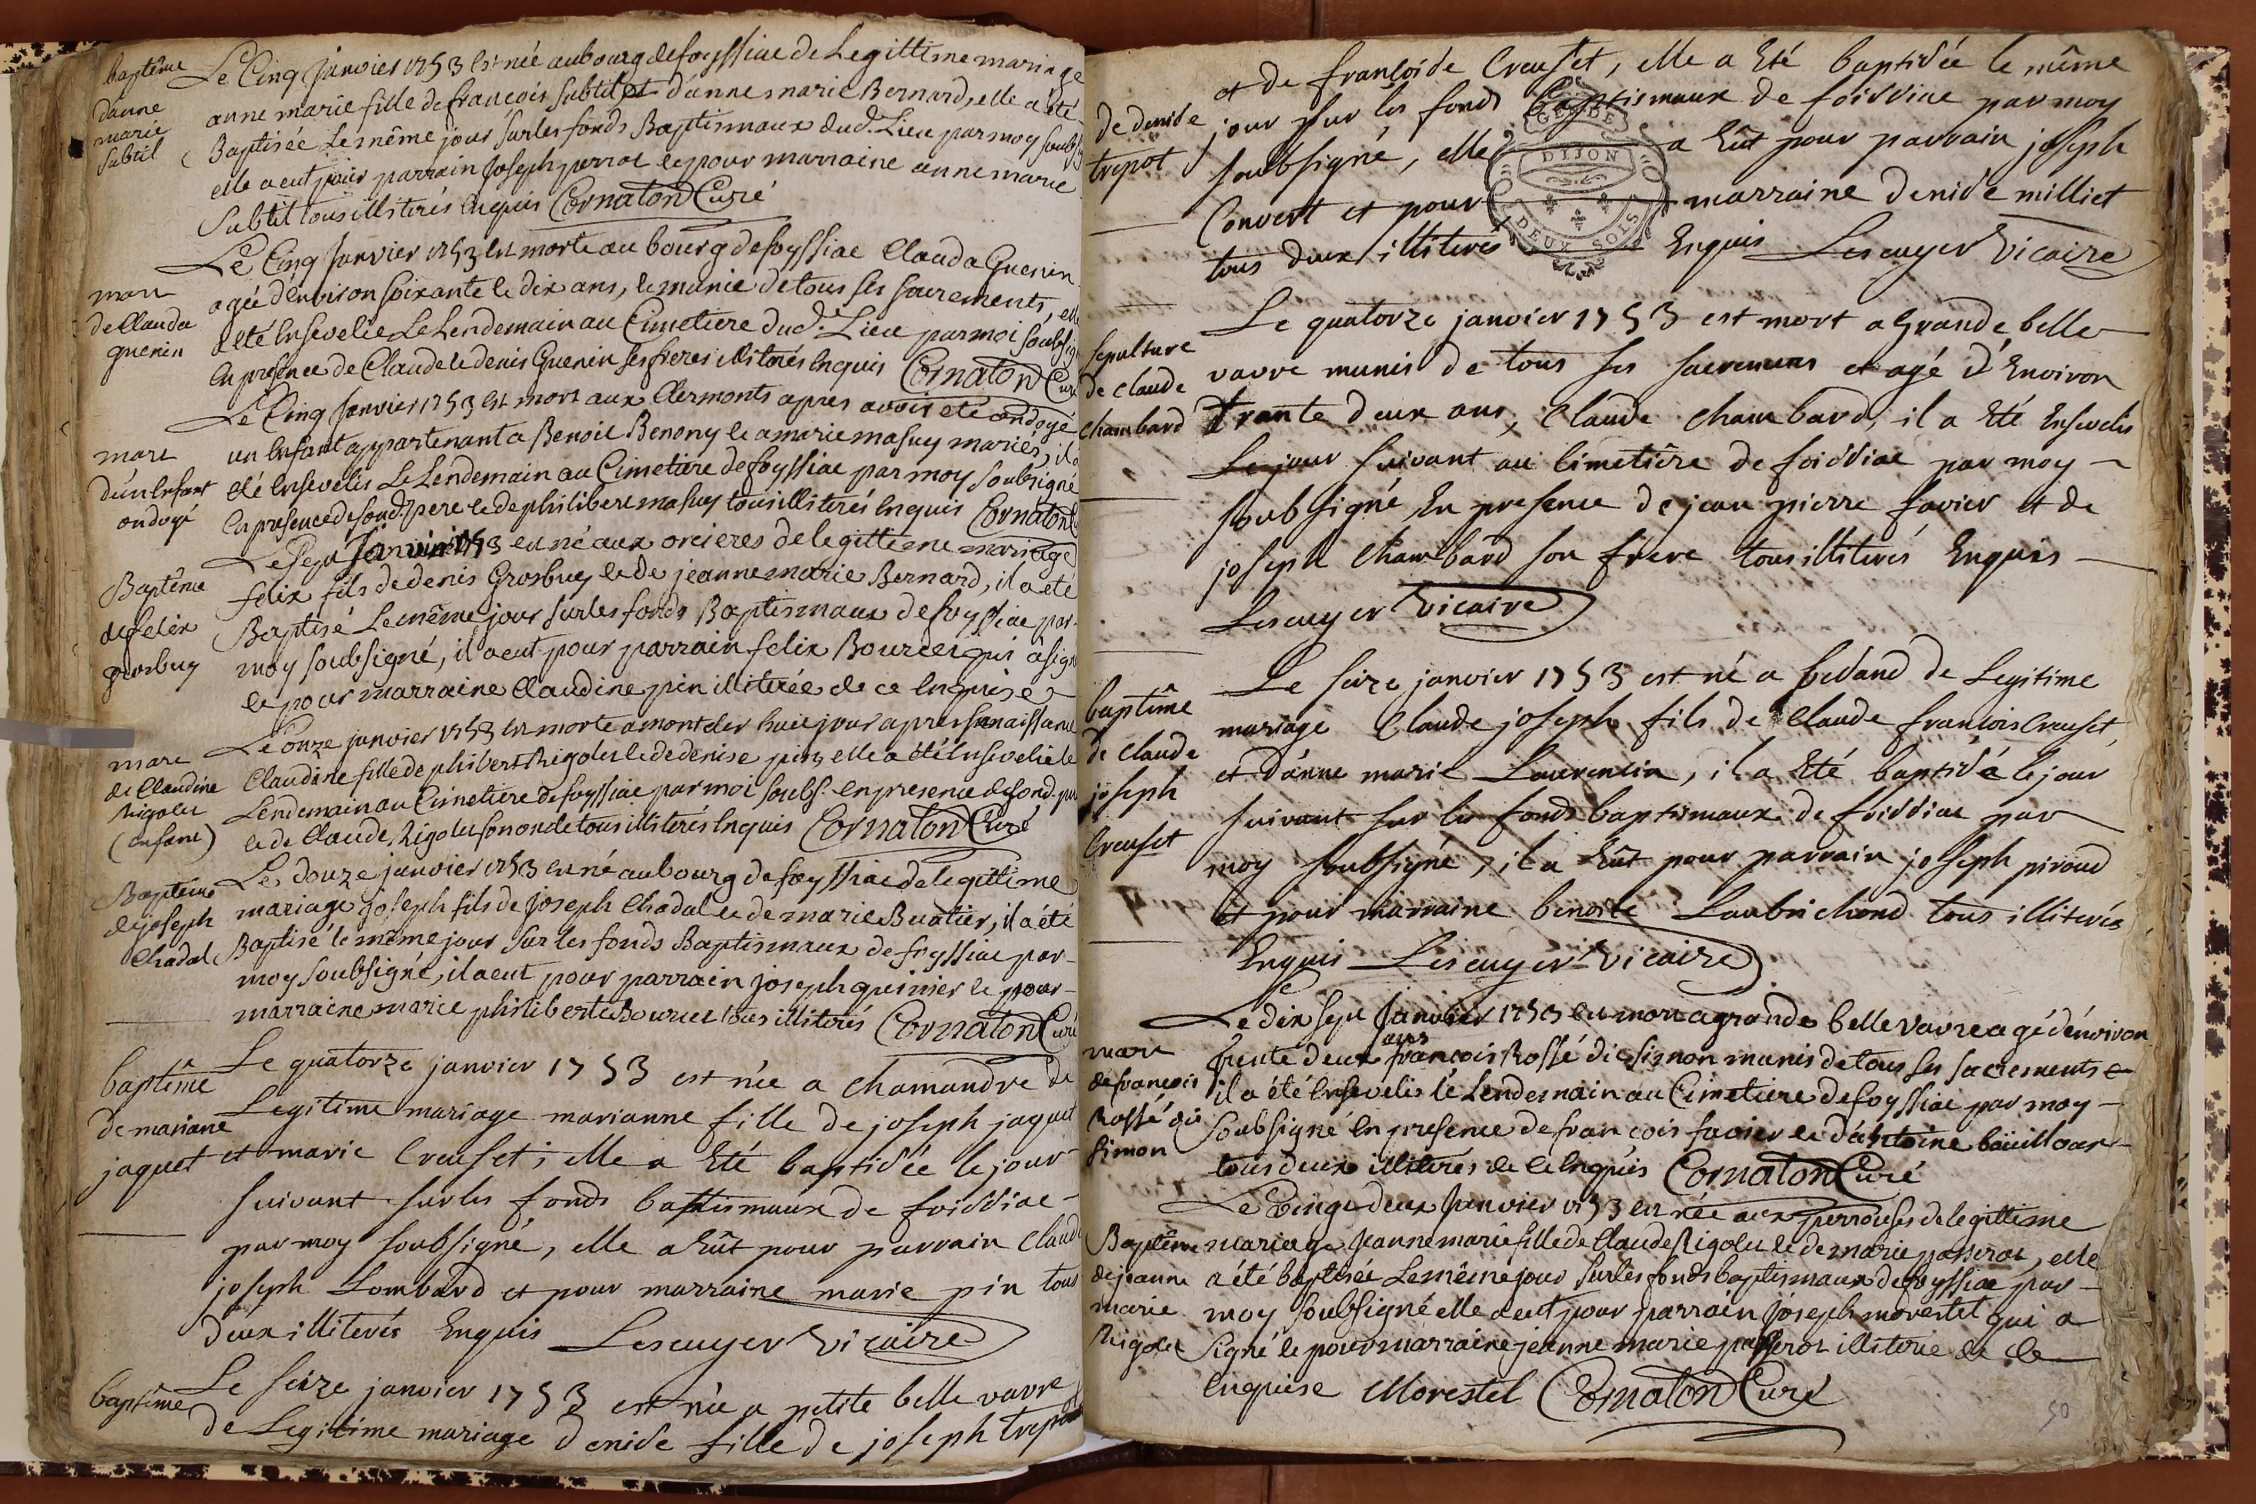 baptême
d'anne
marie
subtil
Le Cinq Janvier 1753 est née au bourg de foyssiac de Legittime mariage
anne marie fille de francois subtil et d'anne marie Bernard, elle a été
Baptisée Le même jour sur les fonds Baptismaux dud. Lieu par moy soubsig
elle a eut pour parrain Joseph perrot et pour marraine anne marie
Subtil tous illiterés Enquis Cornaton Curé
mort
de Clauda
guenin
Le Cinq Janvier 1753 est morte au bourg de foyssiac Clauda Guenin
agée d'environ soixante et dix ans, et munie de tous ses sacrements, elle
a été Ensevelie Le Lendemain au Cimetiere dud. Lieu par moi soubsig
En presence de Claude et denis Guenin ses freres illiterés Enquis Cornaton Curé
mort
d'un Enfant
ondoyé
Le Cinq Janvier 1753 est mort aux Clermonts apres avoir eté ondoyé
un Enfant appartenant a Benoit Benony et a marie masuy mariés, il a
eté Ensevelis Le Lendemain au Cimetiere de foyssiac par moy soubsigné
En presence de son d. pere et de philibert masuy tous illiterés Enquis Cornaton C
Baptême
de felix
grosbuy
Le Sept Janvier 1753 est né aux orcieres de legittime mariage
felix fils de denis Grosbuy et de jeanne marie Bernard, il a été
Baptisé Le même jour sur les fonds Baptismaux de foyssiac par
moy soubsigné, il a eut pour parrain felix Bourcet qui a signé
et pour marraine Claudine pin illiterée de ce Enquise
mort
de Claudine
Rigolet
(enfant)
Le onze janvier 1753 est morte a montcler huit jour apres sa naissance
Claudine fille de philibert Rigolet et de denise pin, elle a été Ensevelie le
Lendemain au Cimetiere de foyssiac par moi soubs. En presence de son d. pere
et de Claude Rigolet son oncle tous illiterés Enquis Cornaton Curé
Baptême
de joseph
Chadal
Le douze janvier 1753 est né au bourg de foyssiac de legittime
mariage joseph fils de Joseph Chadal et de marie Buatier, il a été
Baptisé le même jour sur les fonds Baptismaux de foyssiac par
moy soubsigné, il a eut pour parrain joseph guinier et pour
marraine marie philiberte Bourcet tous illiterés Cornaton Curé
baptême
de mariane
jaquet
Le quatorze janvier 1753 est née a chamandre de
Legitime mariage marianne fille de joseph jaquet
et marie Creuset; elle a Eté baptisée le jour
suivant sur les fonds baptismaux de foissiac
par moy soubsigné, elle a Eût pour parrain Claude
joseph Lombard et pour marraine marie pin tous
deux illiterés Enquis Lescuyer Vicaire
baptême
Le seize janvier 1753 est née a petite belle vavre
de Legitime mariage denise fille de joseph trepot
de denise
trepot
et de françoise Creuset, elle a Eté baptisée le même
jour sur les fonds baptismaux de foissiac par moy
soubsigné, elle a Eût pour parrain joseph
Convert et pour marraine denise milliet
tous deux illiterés Enquis Lescuyer Vicaire
GEN. DE
DIJON
DEUX SOLS
sepulture
de claude
chambard
Le quatorze janvier 1753 est mort a Grande belle
vavre munis de tous ses sacremens et agé d'Environ
trante deux ans, Claude Chambard, il a Eté Ensevelis
Le jour suivant au Cimetière de foissiac par moy
soubsigné En presence de jean pierre favier et de
joseph Chambard son frere tous illiterés Enquis
Lescuyer Vicaire
baptême
de claude
joseph
Creuset
Le seize janvier 1753 est né a bedand de Legitime
mariage Claude joseph fils de Claude francois Creuset
et d'anne marie Laurencin, il a Eté baptisé le jour
suivant sur les fonds baptismaux de foissiac par
moy soubsigné, il a Eût pour parrain joseph piroud
et pour marraine benoite Laubrichond tous illiterés
Enquis Lescuyer Vicaire
mort
de francois
Rossé dit
Simon
Le dix sept Janvier 1753 est mort a grande belle vavre agé d'environ
trente deux ans francois Rossé dit simon munis de tous ses sacrements et
il a été Ensevelis le Lendemain au Cimetiere de foyssiac par moy
soubsigné En presence de francois favier et d'antoine bouilloux
tous deux illiterés de ce Enquis Cornaton Curé
Baptême
de jeanne
marie
Rigolet
Le Vingt deux Janvier 1753 est née aux perrouses de legittime
mariage Jeanne marie fille de Claude Rigolet et de marie passerat, elle
a été baptisée Le même jour sur les fonds baptismaux de foyssiac par
moy soubsigné elle a eut pour parrain joseph morestel qui a
signé et pour marraine jeanne marie passerat illiterie de ce
Enquise Morestel Cornaton Curé
50